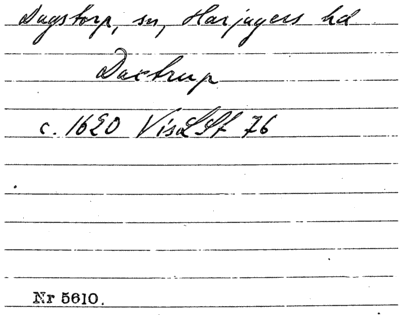 Dagstorp, sn, Harjagers hd
Daxtrup
c. 1620 VisLSt 76
Nr 5610.